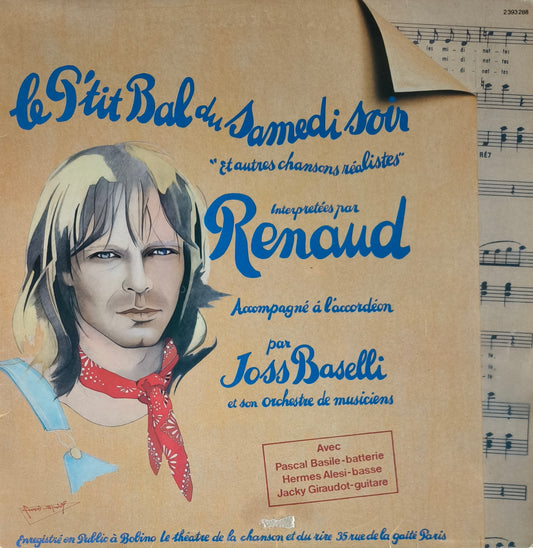 2393288
le P'tit Bal du Samedi soir
"Et autres chansons réalistes"
Interpretées par
Renaud
Accompagné á l'accordéon
par
Joss Baselli
et son orchestre de musiciens
Avec
Pascal Basile-batterie
Hermes Alesi-basse
Jacky Giraudot-guitare
Enregistré en Public à Bobino le théatre de la chanson et du rire 35 rue de la gaité Paris
les mi - di net - tes
mi - di nat - tes
RÉ7